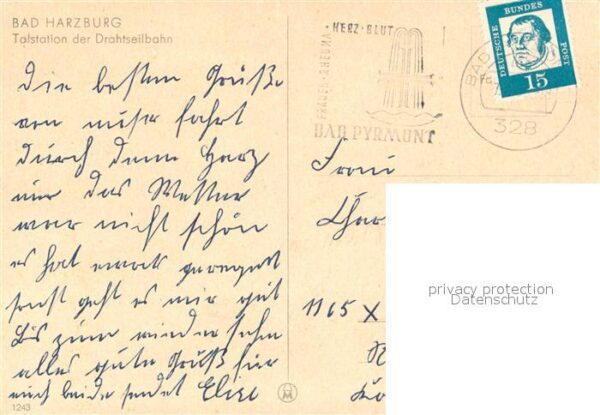 BAD HARZBURG
Talstation der Drahtseilbahn
die besten Grüße
von unser fahrt
durch denn Harz
nur das Wetter
war nicht schön
es hat geregnet
sonst geht es mir gut
bis zum wieder sehn
alles gute Grüß für
euch beide sendet Elise
1243
HERZ · BLUT
FRAUEN · RHEUMA
BAD PYRMONT
BAD
328
DEUTSCHE BUNDES POST
15
Frau
Char
1165 X
privacy protection
Datenschutz